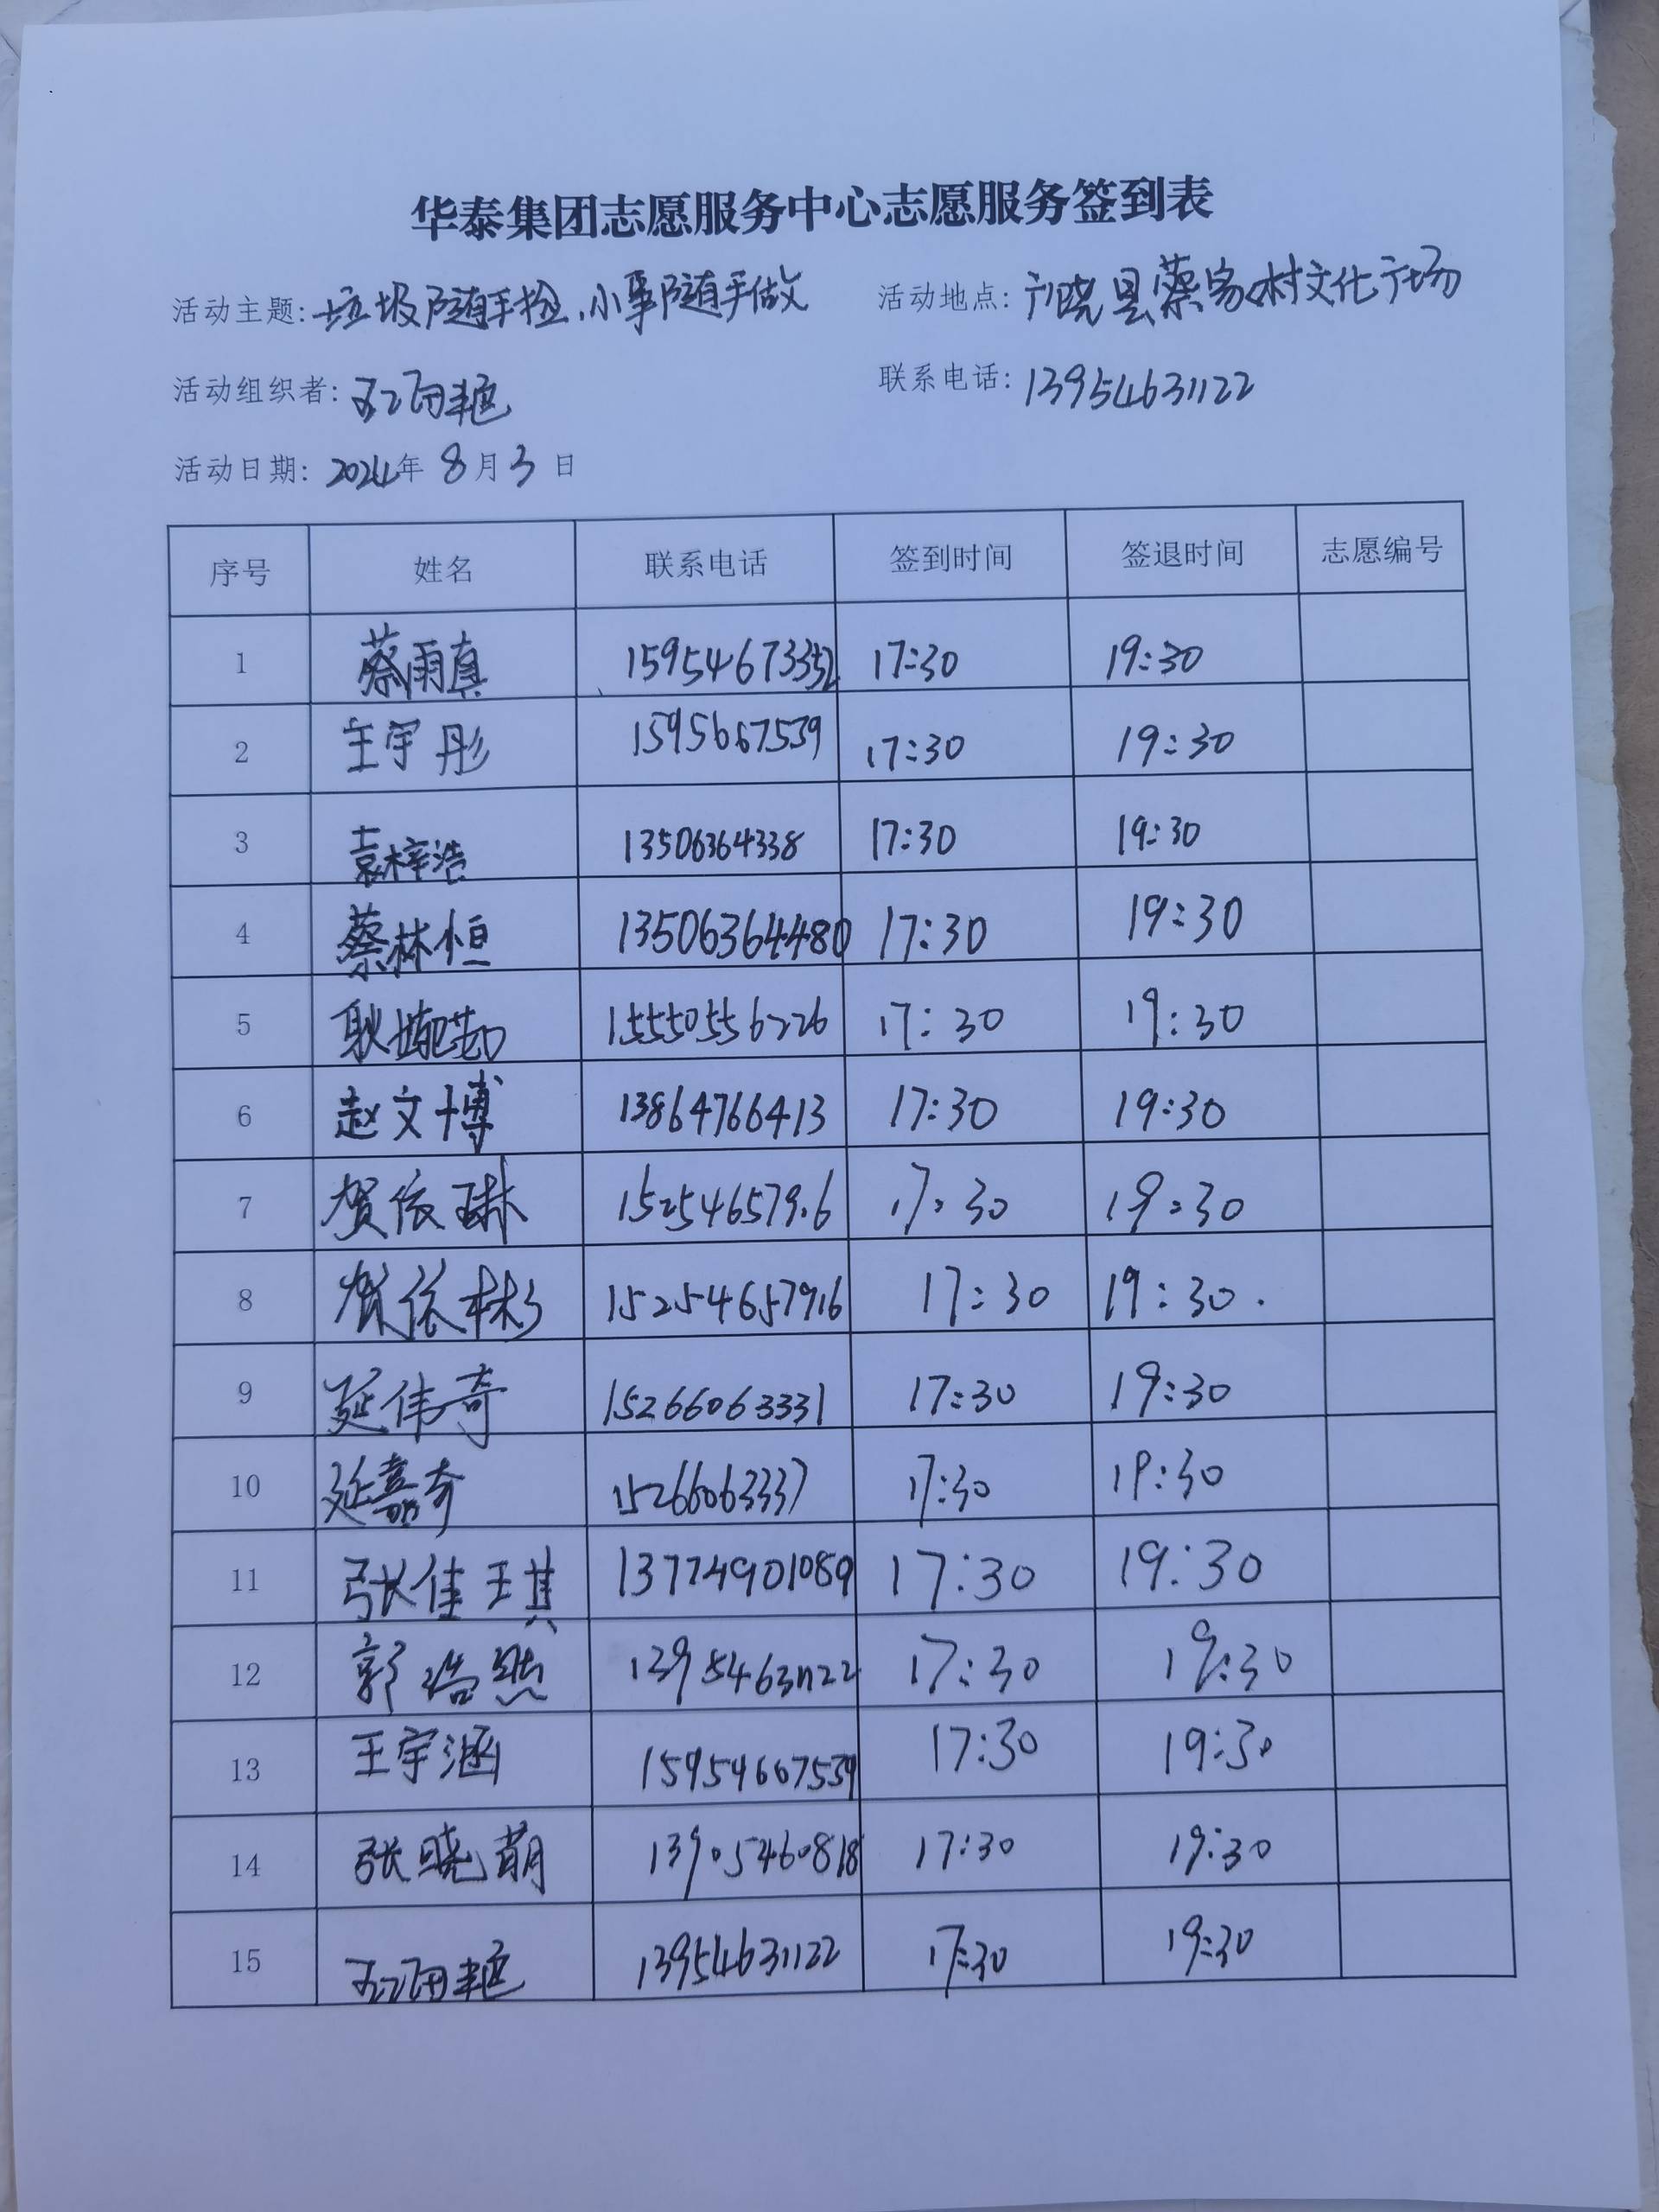 华泰集团志愿服务中心志愿服务签到表
活动主题: 垃圾随手捡,小事随手做 活动地点: 广饶县蔡家村文化广场
活动组织者: 联系电话: 13954631122
活动日期: 2024年 8月3日
序号 姓名 联系电话 签到时间 签退时间 志愿编号
1 蔡雨真 17:30 19:30
2 王宇彤 1595667539 17:30 19:30
3 袁梓浩 13506364338 17:30 19:30
4 蔡林恒 13506364480 17:30 19:30
5 耿 15550556226 17:30 19:30
6 赵文博 13864766413 17:30 19:30
7 贺依琳 15254657916 17:30 19:30
8 贺依彬 15254657916 17:30 19:30.
9 延伟奇 15266063331 17:30 19:30
10 延嘉奇 15266063337 17:30 19:30
11 张佳琪 13774901089 17:30 19:30
12 郭浩然 13954631122 17:30 19:30
13 王宇涵 15954667539 17:30 19:30
14 张晓萌 13905460818 17:30 19:30
15 13954631122 17:30 19:30